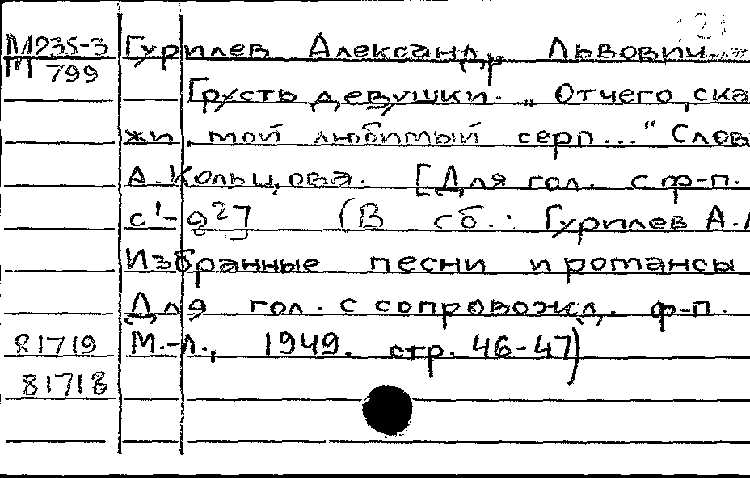 М235-3 Гурилев Александр Львович
М 799
Грусть девушки. „Отчего, ска
жи, мой любимый серп..." Слов
А. Кольцова. [Для гол. с ф-п.
с¹-g²] (В сб.: Гурилев А.Л
Избранные песни и романсы
Для гол. с сопровожд. ф-п.
81719 М.-Л., 1949. стр. 46-47)
81718